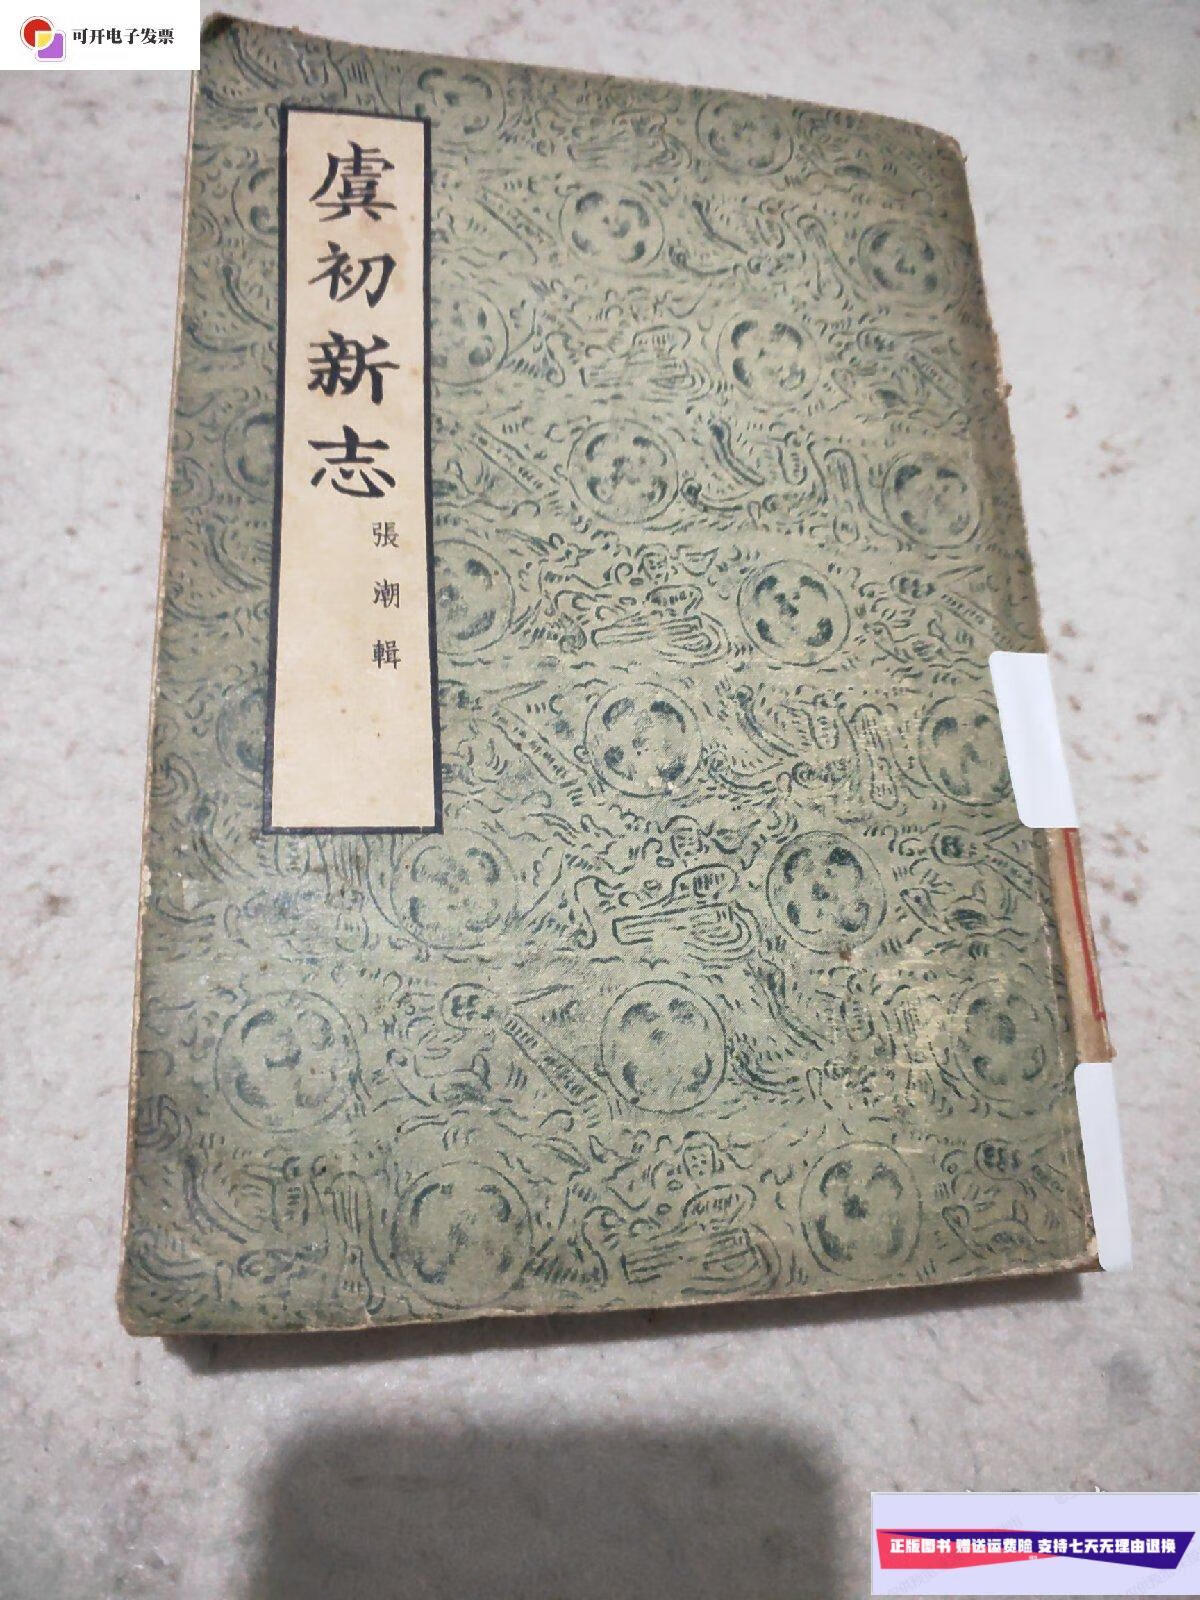 可开电子发票
虞初新志
張潮輯
正版图书 赠送运费险 支持七天无理由退换